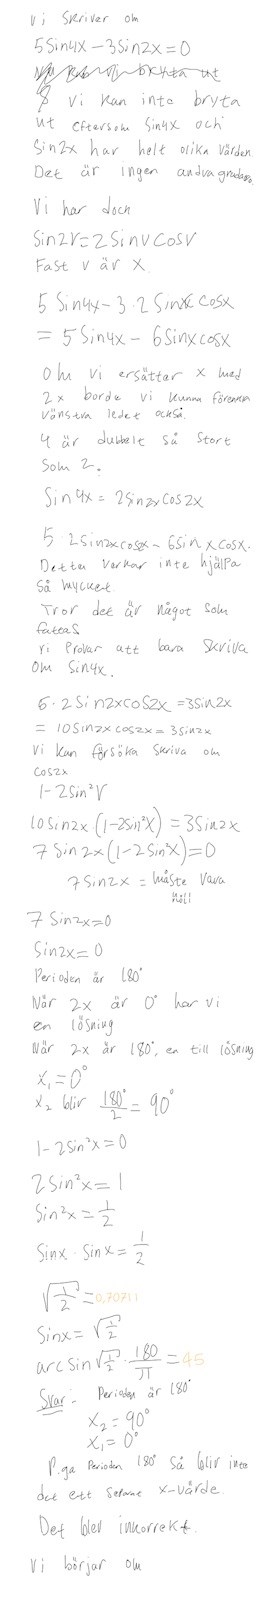 Vi skriver om
5sin4x - 3sin2x = 0
bryta ut
vi kan inte bryta
ut eftersom sin4x och
sin2x har helt olika värden.
Det är ingen andragradare.
Vi har dock
sin2v = 2sinvcosv
Fast v är x.
5 sin4x - 3 · 2 sinx cosx
= 5 sin4x - 6sinxcosx
Om vi ersätter x med
2x borde vi kunna förenkla
vänstra ledet också.
4 är dubbelt så stort
som 2.
sin4x = 2sin2xcos2x
5 · 2sin2xcos2x - 6sinxcosx.
Detta verkar inte hjälpa
så mycket.
Tror det är något som
fattas
vi provar att bara skriva
om sin4x.
5 · 2sin2xcos2x = 3sin2x
= 10sin2xcos2x = 3sin2x
Vi kan försöka skriva om
cos2x
1 - 2sin²v
10sin2x · (1-2sin²x) = 3sin2x
7sin2x (1-2sin²x) = 0
7sin2x = måste vara
noll
7sin2x = 0
sin2x = 0
Perioden är 180°
När 2x är 0° har vi
en lösning
När 2x är 180°, en till lösning
x₁ = 0°
x₂ blir 180°/2 = 90°
1 - 2sin²x = 0
2sin²x = 1
sin²x = 1/2
sinx · sinx = 1/2
√(1/2) = 0,70711
sinx = √(1/2)
arcsin √(1/2) · 180/π = 45
Svar: Perioden är 180°
x₂ = 90°
x₁ = 0°
P.ga Perioden 180° så blir inte
det ett x-värde.
Det blev inkorrekt.
Vi börjar om